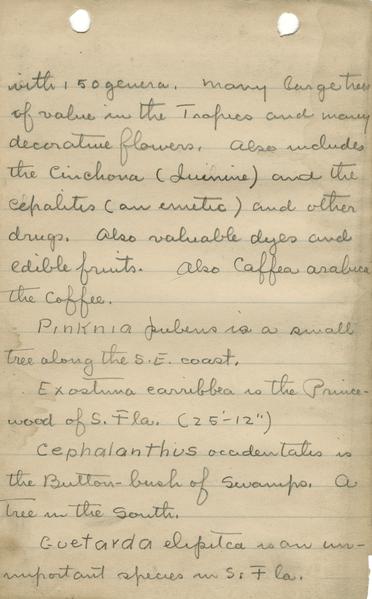 with 150 genera. Many large trees
of value in the Tropics and many
decorative flowers. Also includes
the Cinchona (Quinine) and the
cepalitis (an emetic) and other
drugs. Also valuable dyes and
edible fruits. Also Caffea arabica
the Coffee.
Pinknia pubens is a small
tree along the S.E. coast.
Exostuma carribbea is the Prince-
wood of S. Fla. (25'-12")
Cephalanthus occidentalis is
the Button-bush of Swamps. A
tree in the South.
Guetarda elipitca is an un-
important species in S. Fla.